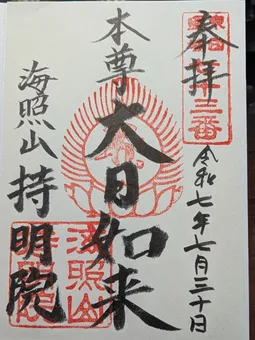 奉拝
令和七年七月三十日
本尊 大日如来
海照山 持明院
海照山